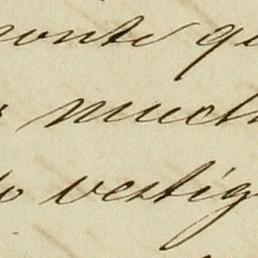 onte qu
s much
to vestig